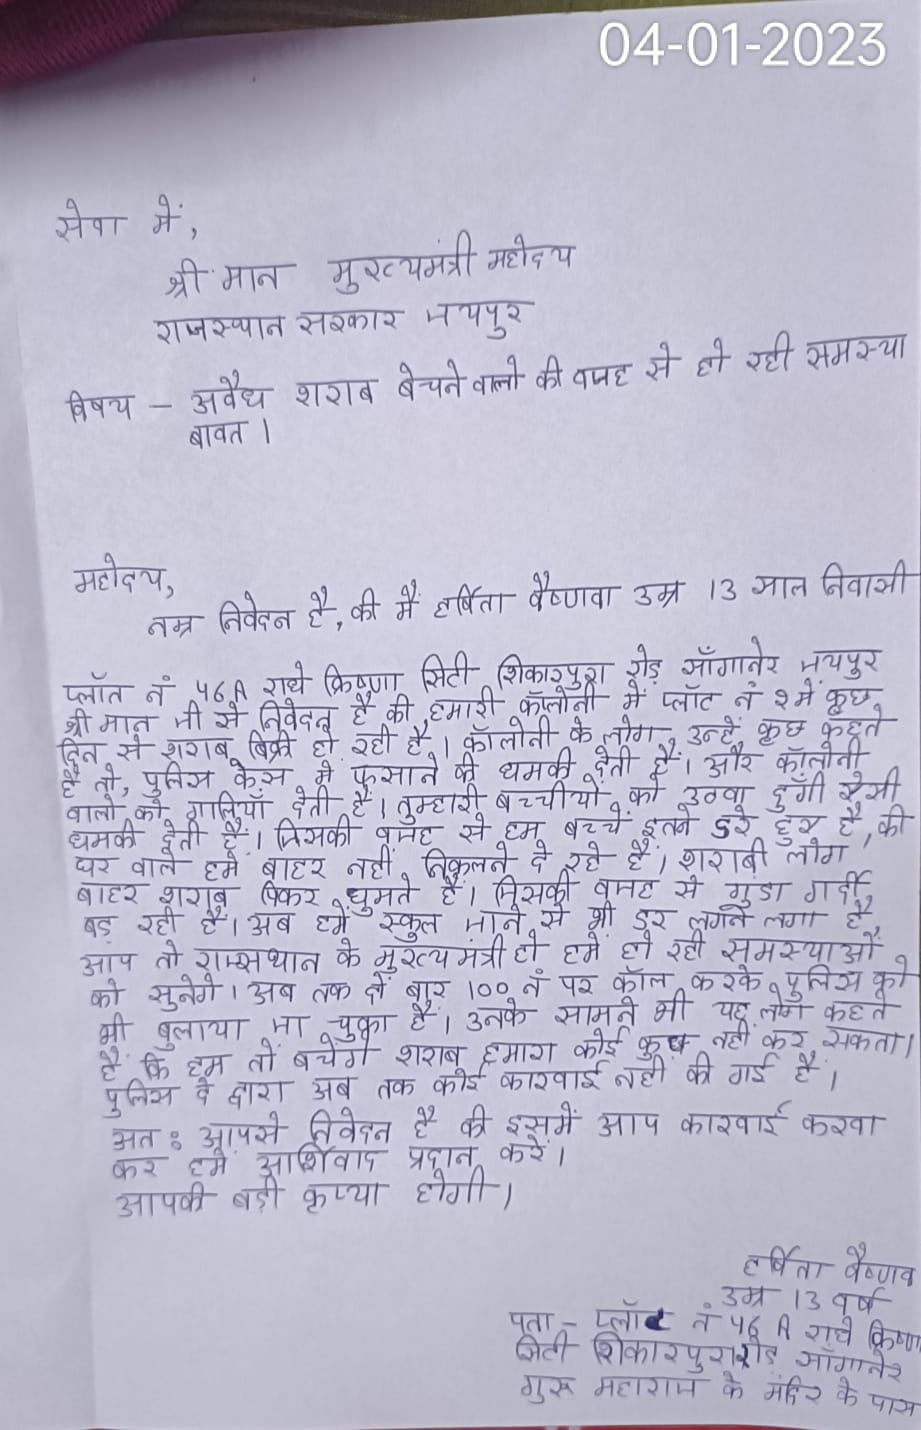 04-01-2023
सेवा में,
श्री मान मुख्यमंत्री महोदय
राजस्थान सरकार जयपुर
विषय - अवैध शराब बेचने वालो की वजह से हो रही समस्या
बावत ।
महोदय,
नम्र निवेदन है, की मैं हर्षिता वैष्णवा उम्र 13 साल निवासी
प्लॉत नं 46A राधे क्रिष्णा सिटी शिकारपुरा रोड़ साँगानेर जयपुर
श्री मान जी से निवेदन है की हमारी कॉलोनी में प्लॉट नं 2 में कुछ
दिन से शराब बिक्री हो रही है । कॉलोनी के लोग उन्हें कुछ कहते
है तो, पुलिस केस मे फसाने की धमकी देती है । और कॉलोनी
वालो को गालियाँ देती है । तुम्हारी बच्चीयो को उठवा दुँगी ऐसी
धमकी देती है । जिसकी वजह से हम बच्चें इतने डरे हुए है, की
घर वाले हमे बाहर नहीं निकलने दे रहे है । शराबी लोग
बाहर शराब पिकर घुमते है । जिसकी वजह से गुडा गर्दी
बड़ रही है । अब हमें स्कुल जाने से भी डर लगने लगा है
आप तो राज्सथान के मुख्यमंत्री हो हमें हो रही समस्याओं
को सुनेगे । अब तक दो बार 100 नं पर कॉल करके पुलिस को
भी बुलाया जा चुका है । उनके सामने भी यह लोग कहते
हैं कि हम तों बचेगे शराब हमारा कोई कुछ नही कर सकता ।
पुलिस दे द्वारा अब तक कोई कारवाई नही की गई है ।
अत : आपसे निवेदन है की इसमें आप कारवाई करवा
कर हमें आर्शिवाद प्रदान करें ।
आपकी बड़ी कृप्या होगी ।
हर्षिता वैष्णव
उम्र 13 वर्ष
पता - प्लॉट नं 46 A राधे क्रिष्णा
सिटी शिकारपुरा रोड साँगानेर
गुरू महाराज के मंदिर के पास